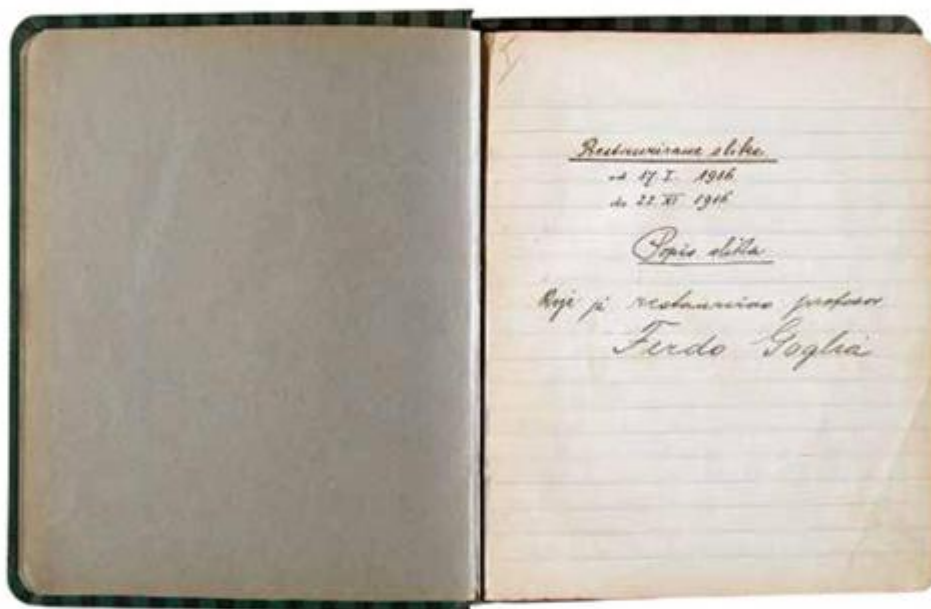 Restaurirane slike
od 17 I. 1916
do 22. XI 1916
Popis slika
Koje je restaurirao profesor
Ferdo Goglia